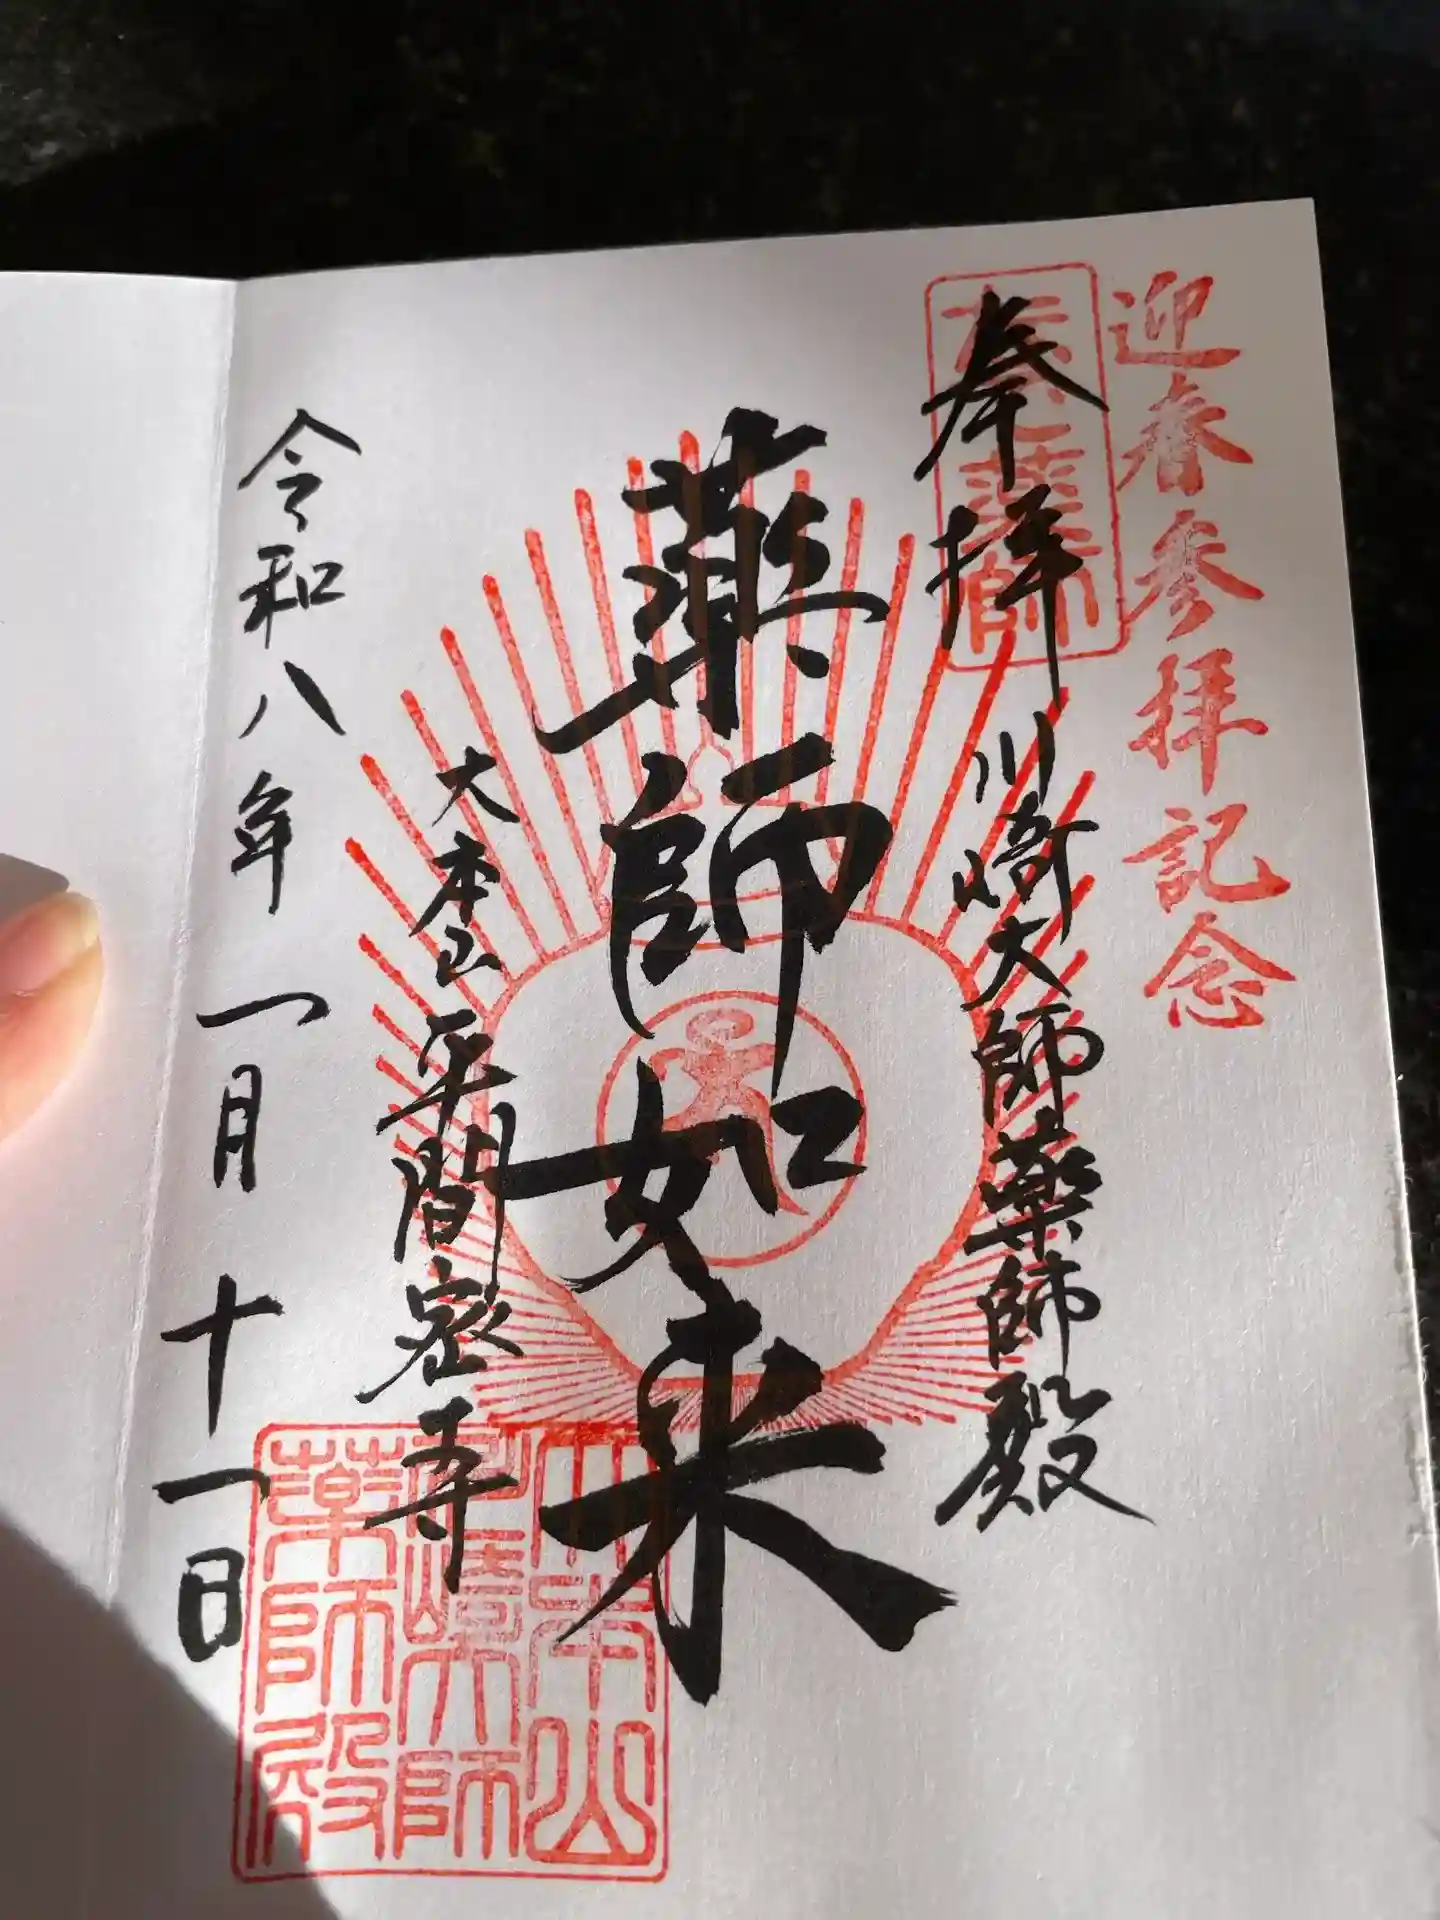 迎春参拝記念
奉拝
川崎大師薬師殿
薬師如来
大本山平間密寺
令和八年一月十一日
大本山
川崎大師
薬師殿